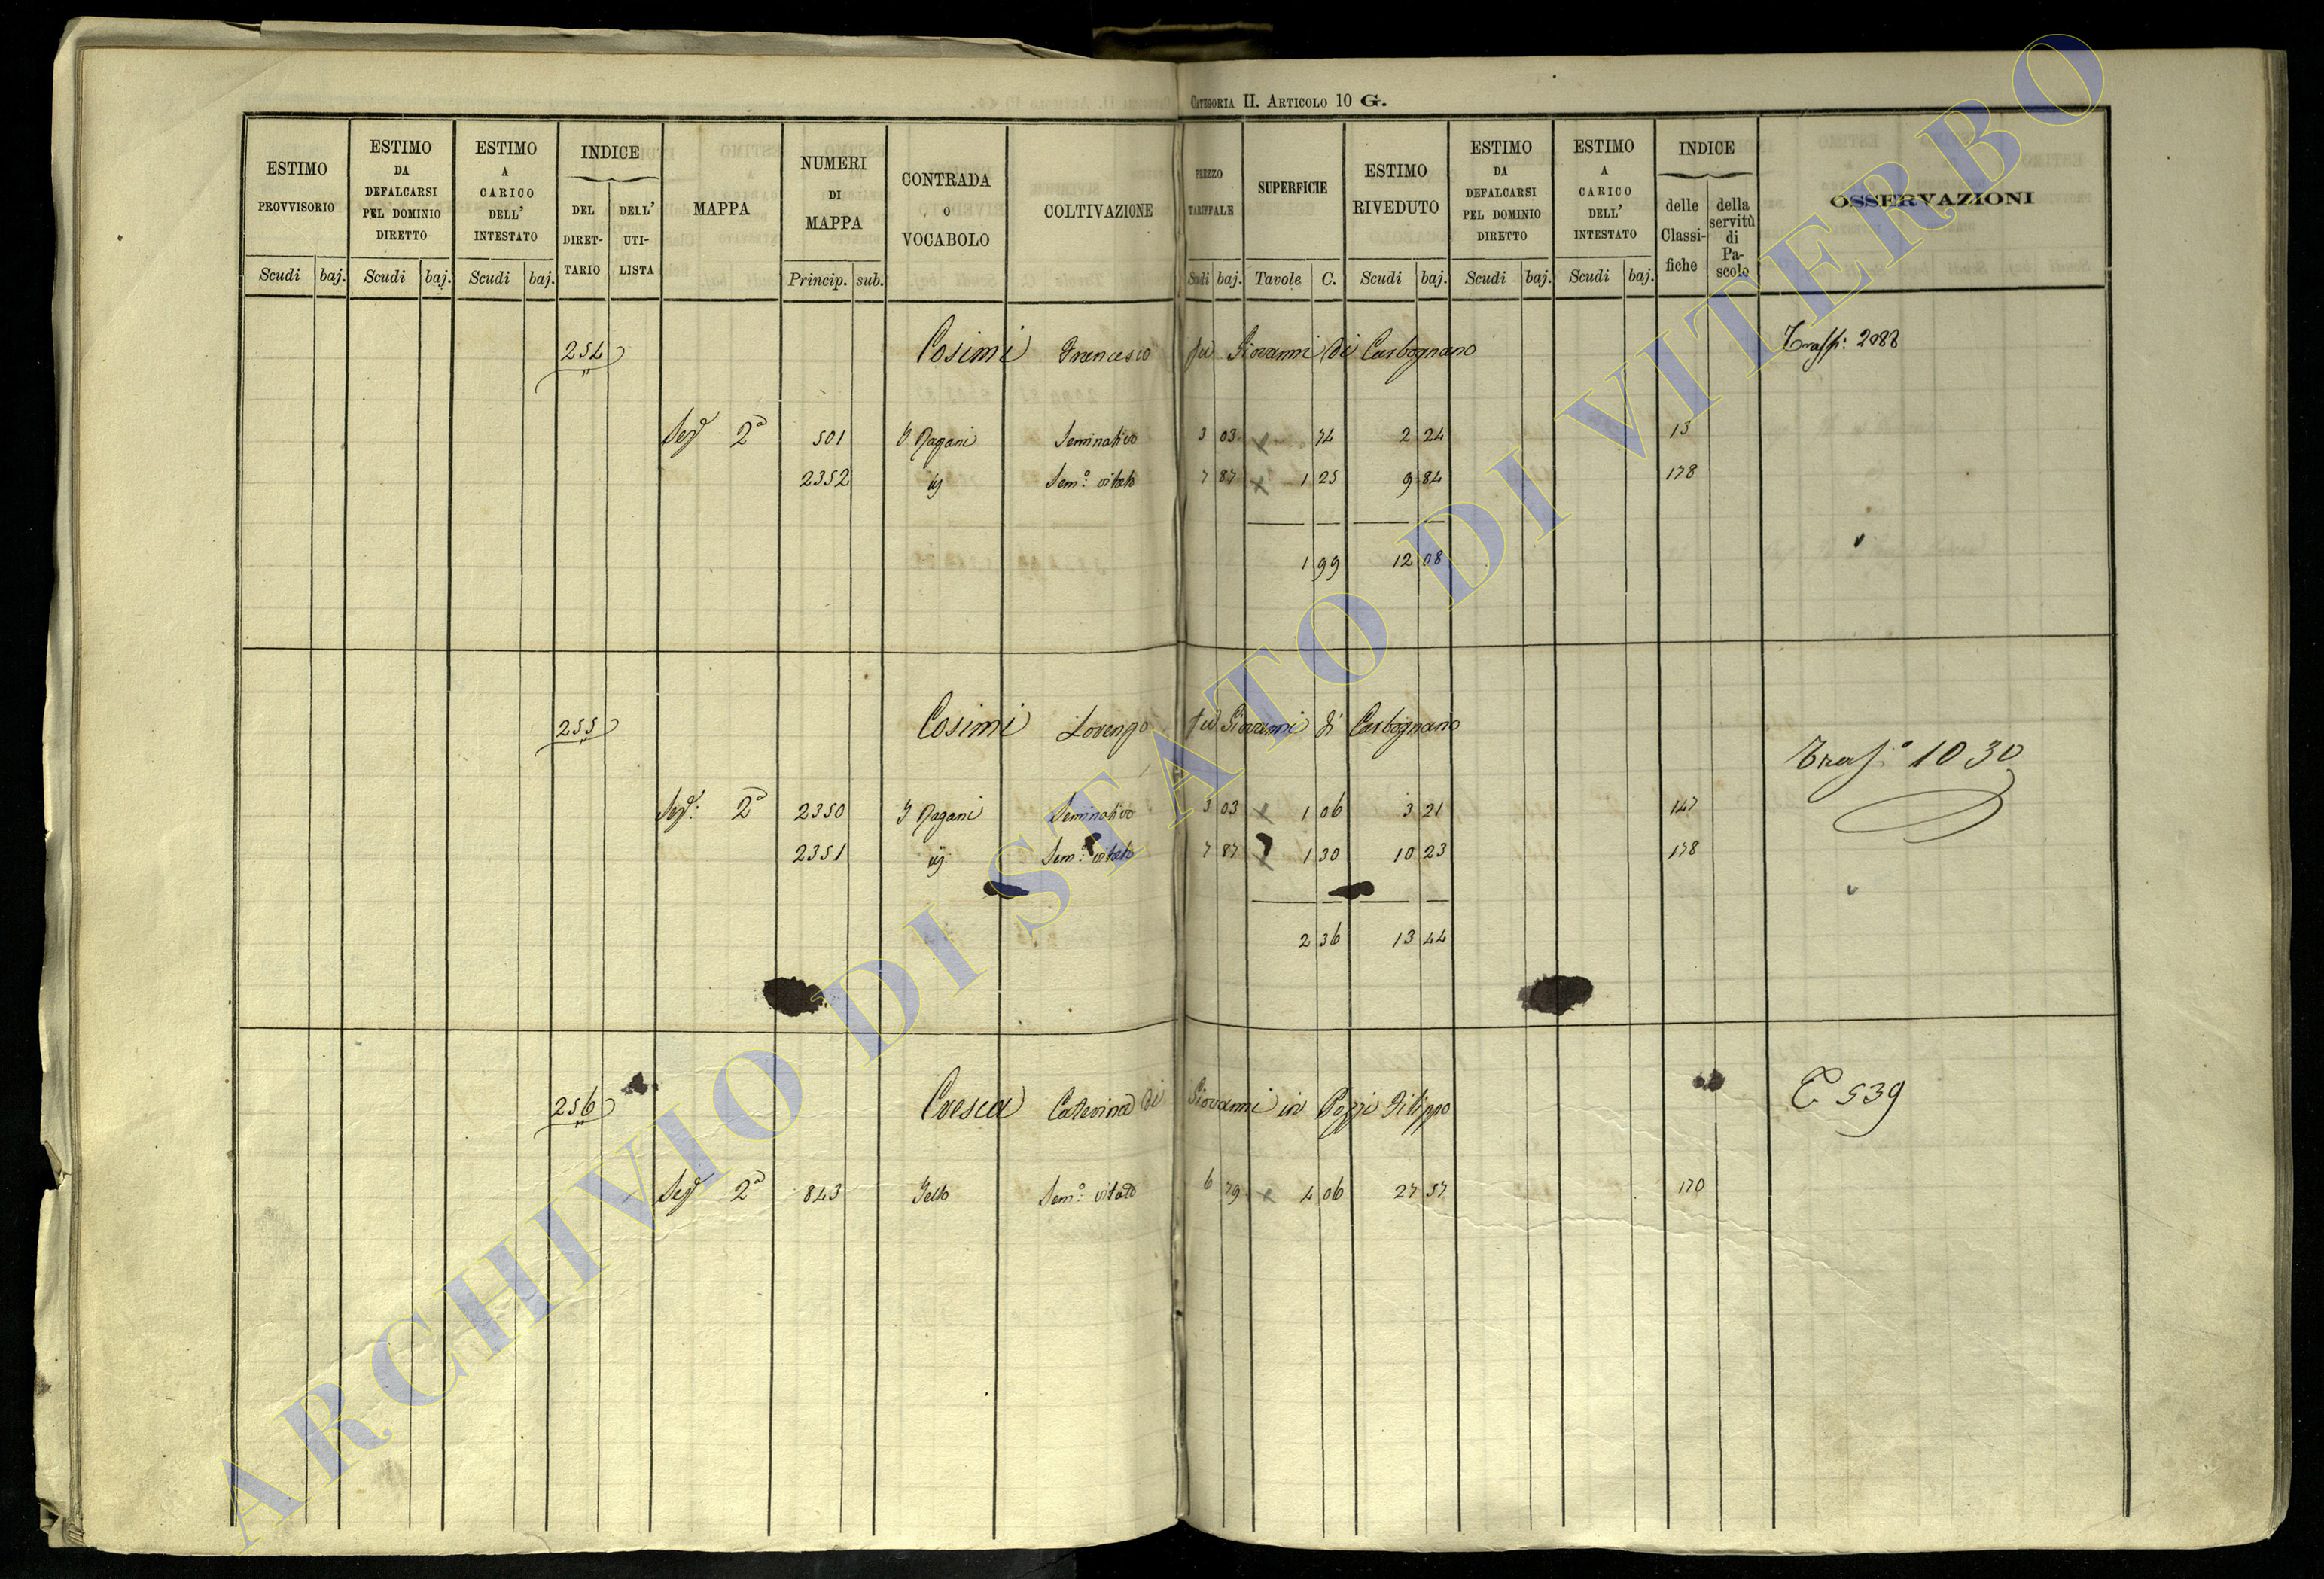 CATEGORIA II. ARTICOLO 10 G.
ESTIMO PROVVISORIO Scudi baj.
ESTIMO DA DEFALCARSI PEL DOMINIO DIRETTO Scudi baj.
ESTIMO A CARICO DELL' INTESTATO Scudi baj.
INDICE DEL DIRETTARIO DELL' UTILISTA
MAPPA
NUMERI DI MAPPA Princip. sub.
CONTRADA O VOCABOLO
COLTIVAZIONE
PREZZO TARIFFALE Scudi baj.
SUPERFICIE Tavole C.
ESTIMO RIVEDUTO Scudi baj.
ESTIMO DA DEFALCARSI PEL DOMINIO DIRETTO Scudi baj.
ESTIMO A CARICO DELL' INTESTATO Scudi baj.
INDICE delle Classifiche della servitù di Pascolo
OSSERVAZIONI
254 Cosimi Francesco fu Giovanni di Carbognano 2088
2ª 501 Pagani Seminativo 3 03 74 2 24 13
2352 Sem.º vitato 7 87 1 25 9 84 178
1 99 12 08
255 Cosimi Lorenzo fu Giovanni di Carbognano
Tras.º 1030
2ª 2350 Pagani Seminativo 3 03 1 06 3 21 147
2351 Sem.º vitato 7 87 1 30 10 23 178
2 36 13 44
256 Cresca Caterina di Giovanni in Pozzi Filippo 539
2ª 843 Sem.º vitato 6 79 4 06 27 57 170
ARCHIVIO DI STATO DI VITERBO